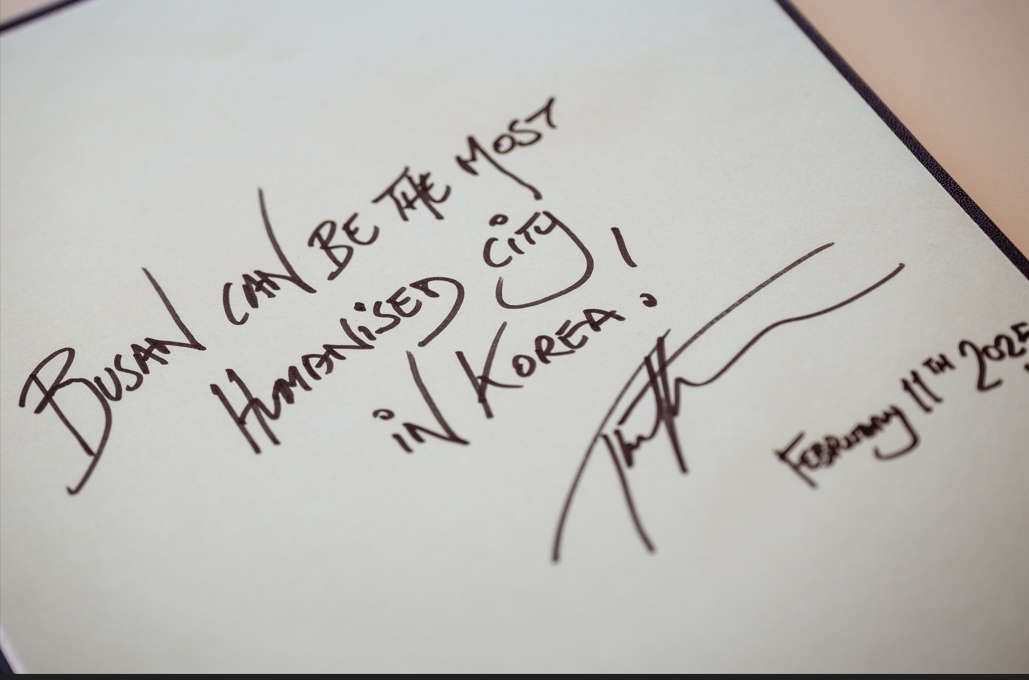 BUSAN CAN BE THE MOST
HUMANiSED CiTY
iN KOREA!
FEBRUARY 11TH 2025